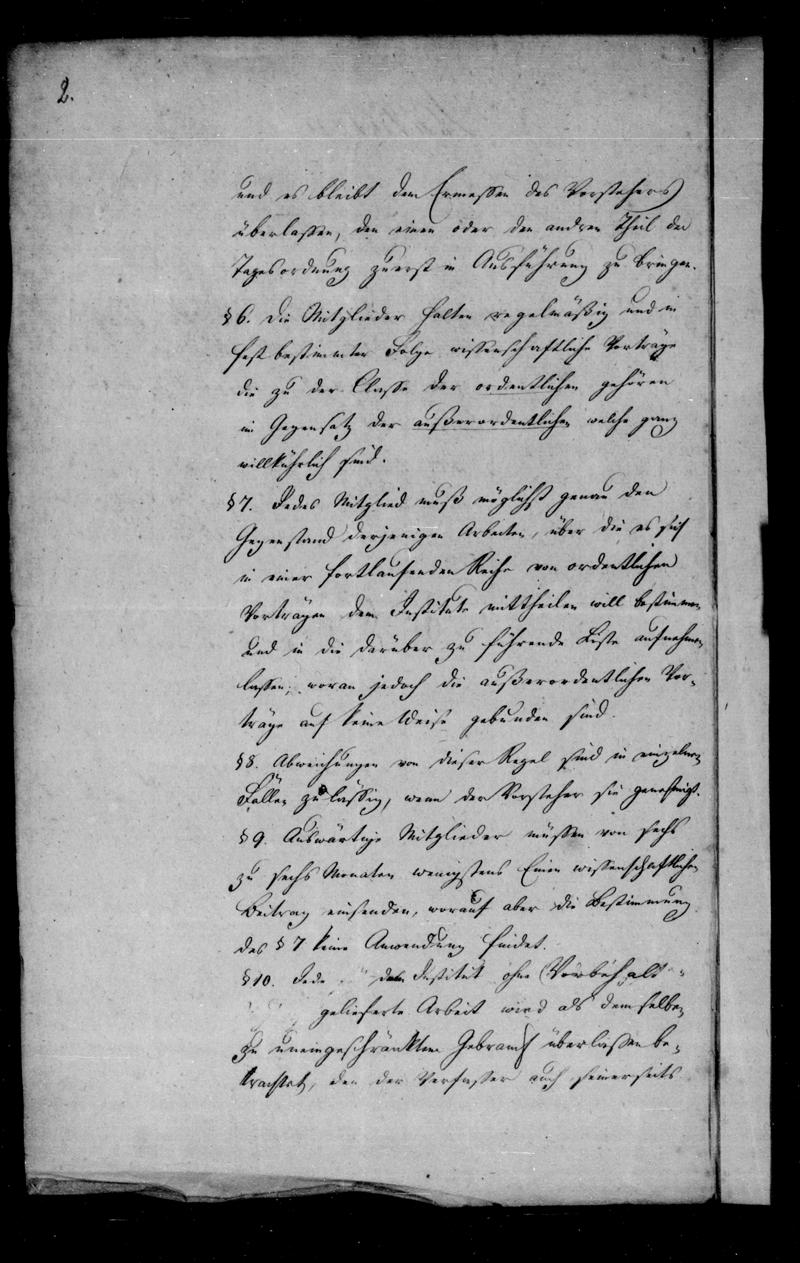 2.
und es bleibt dem Ermessen des Vorstehers
überlassen, den einen oder den andren Theil der
Tagesordnung zuerst in Ausführung zu bringen.
§ 6. Die Mitglieder halten regelmäßig und in
fest bestimmter Folge wissenschaftliche Vorträge
die zu der Classe der ordentlichen gehören
im Gegensatz der außerordentlichen welche ganz
willkührlich sind.
§ 7. Jedes Mitglied muß möglichst genau den
Gegenstand derjenigen Arbeiten, über die es sich
in einer fortlaufenden Reihe von ordentlichen
Vorträgen dem Institute mittheilen will bestimmen
und in die darüber zu führende Liste aufnehmen
lassen; woran jedoch die außerordentlichen Vor-
träge auf keine Weise gebunden sind.
§ 8. Abweichungen von dieser Regel sind in einzelnen
Fällen zulässig, wenn der Vorsteher sie genehmigt.
§ 9. Auswärtige Mitglieder müssen von sechs
zu sechs Monaten wenigstens Einen wissenschaftlichen
Beitrag einsenden, worauf aber die Bestimmung
des § 7 keine Anwendung findet.
§ 10. Jede dem Institut ohne Vorbehalt
gelieferte Arbeit wird als demselben
zu uneingeschränktem Gebrauch überlassen be-
trachtet, den der Verfasser auch seinerseits